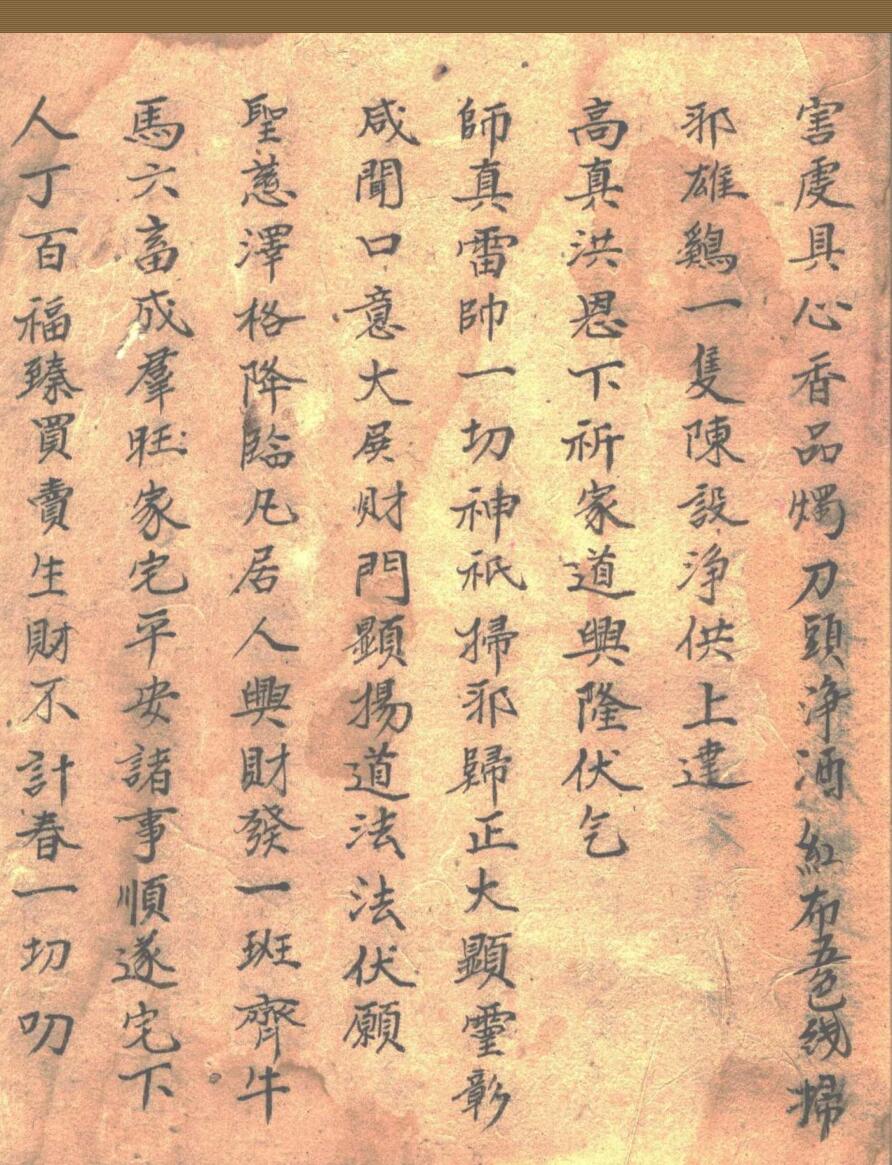 害虔具心香品燭刀頭淨酒紅布五色线掃
邪雄鷄一隻陳設淨供上達
高真洪恩下祈家道興隆伏乞
師真雷帥一切神祇掃邪歸正大顯靈彰
咸聞口意大展財門顯揚道法法伏願
聖慈澤格降臨凡居人興財發一班齊牛
馬六畜成羣旺家宅平安諸事順遂宅下
人丁百福臻買賣生財不計春一切叨